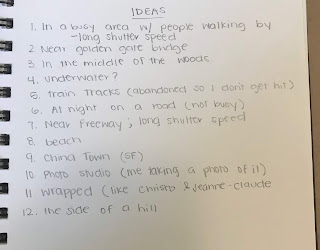 IDEAS
1. In a busy area w/ people walking by
-long shutter speed
2. Near golden gate bridge
3. In the middle of the woods
4. Underwater?
5. Train tracks (abandoned so I don't get hit)
6. At night on a road (not busy)
7. Near freeway; long shutter speed
8. beach
9. China Town (SF)
10. Photo studio (me taking a photo of it)
11. wrapped (like christo & jeanne-claude
12. the side of a hill